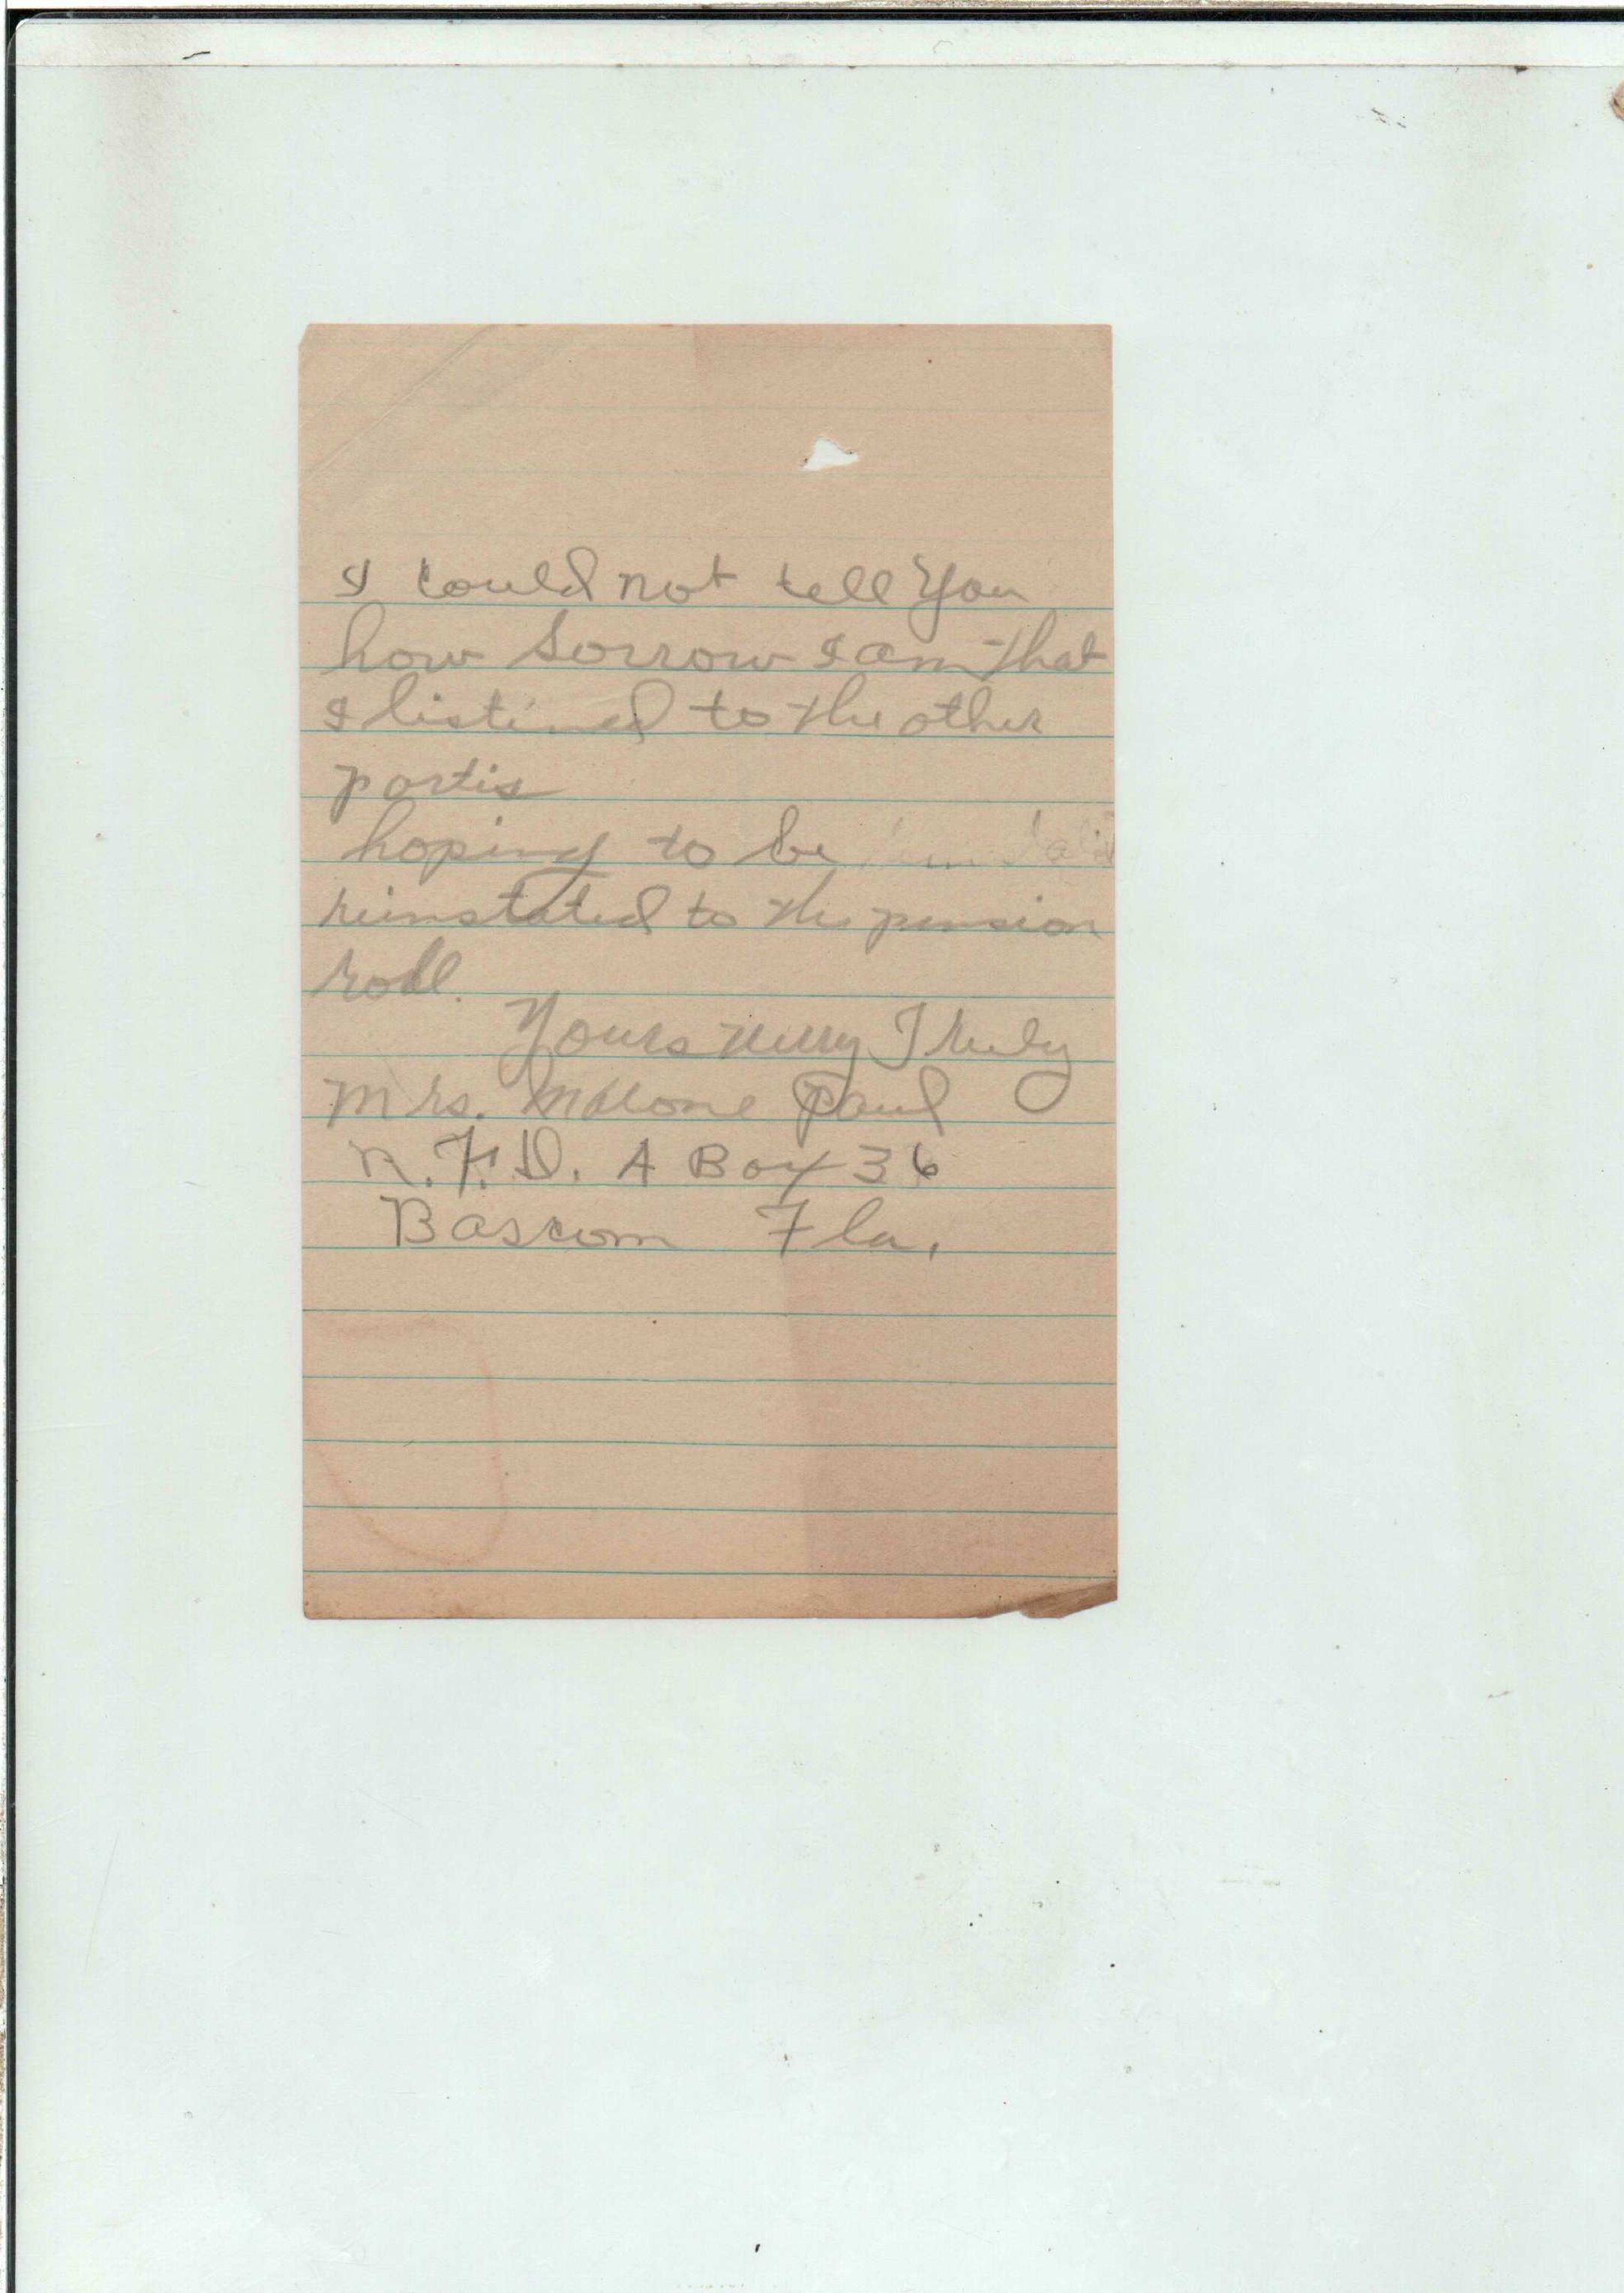 I could not tell You
how Sorrow I am that
I listined to the other
partis
hoping to be
reinstated to the pension
roll.
Yours very Truly
Mrs. Malone Paul
R.F.D. A Box 36
Bascom Fla.